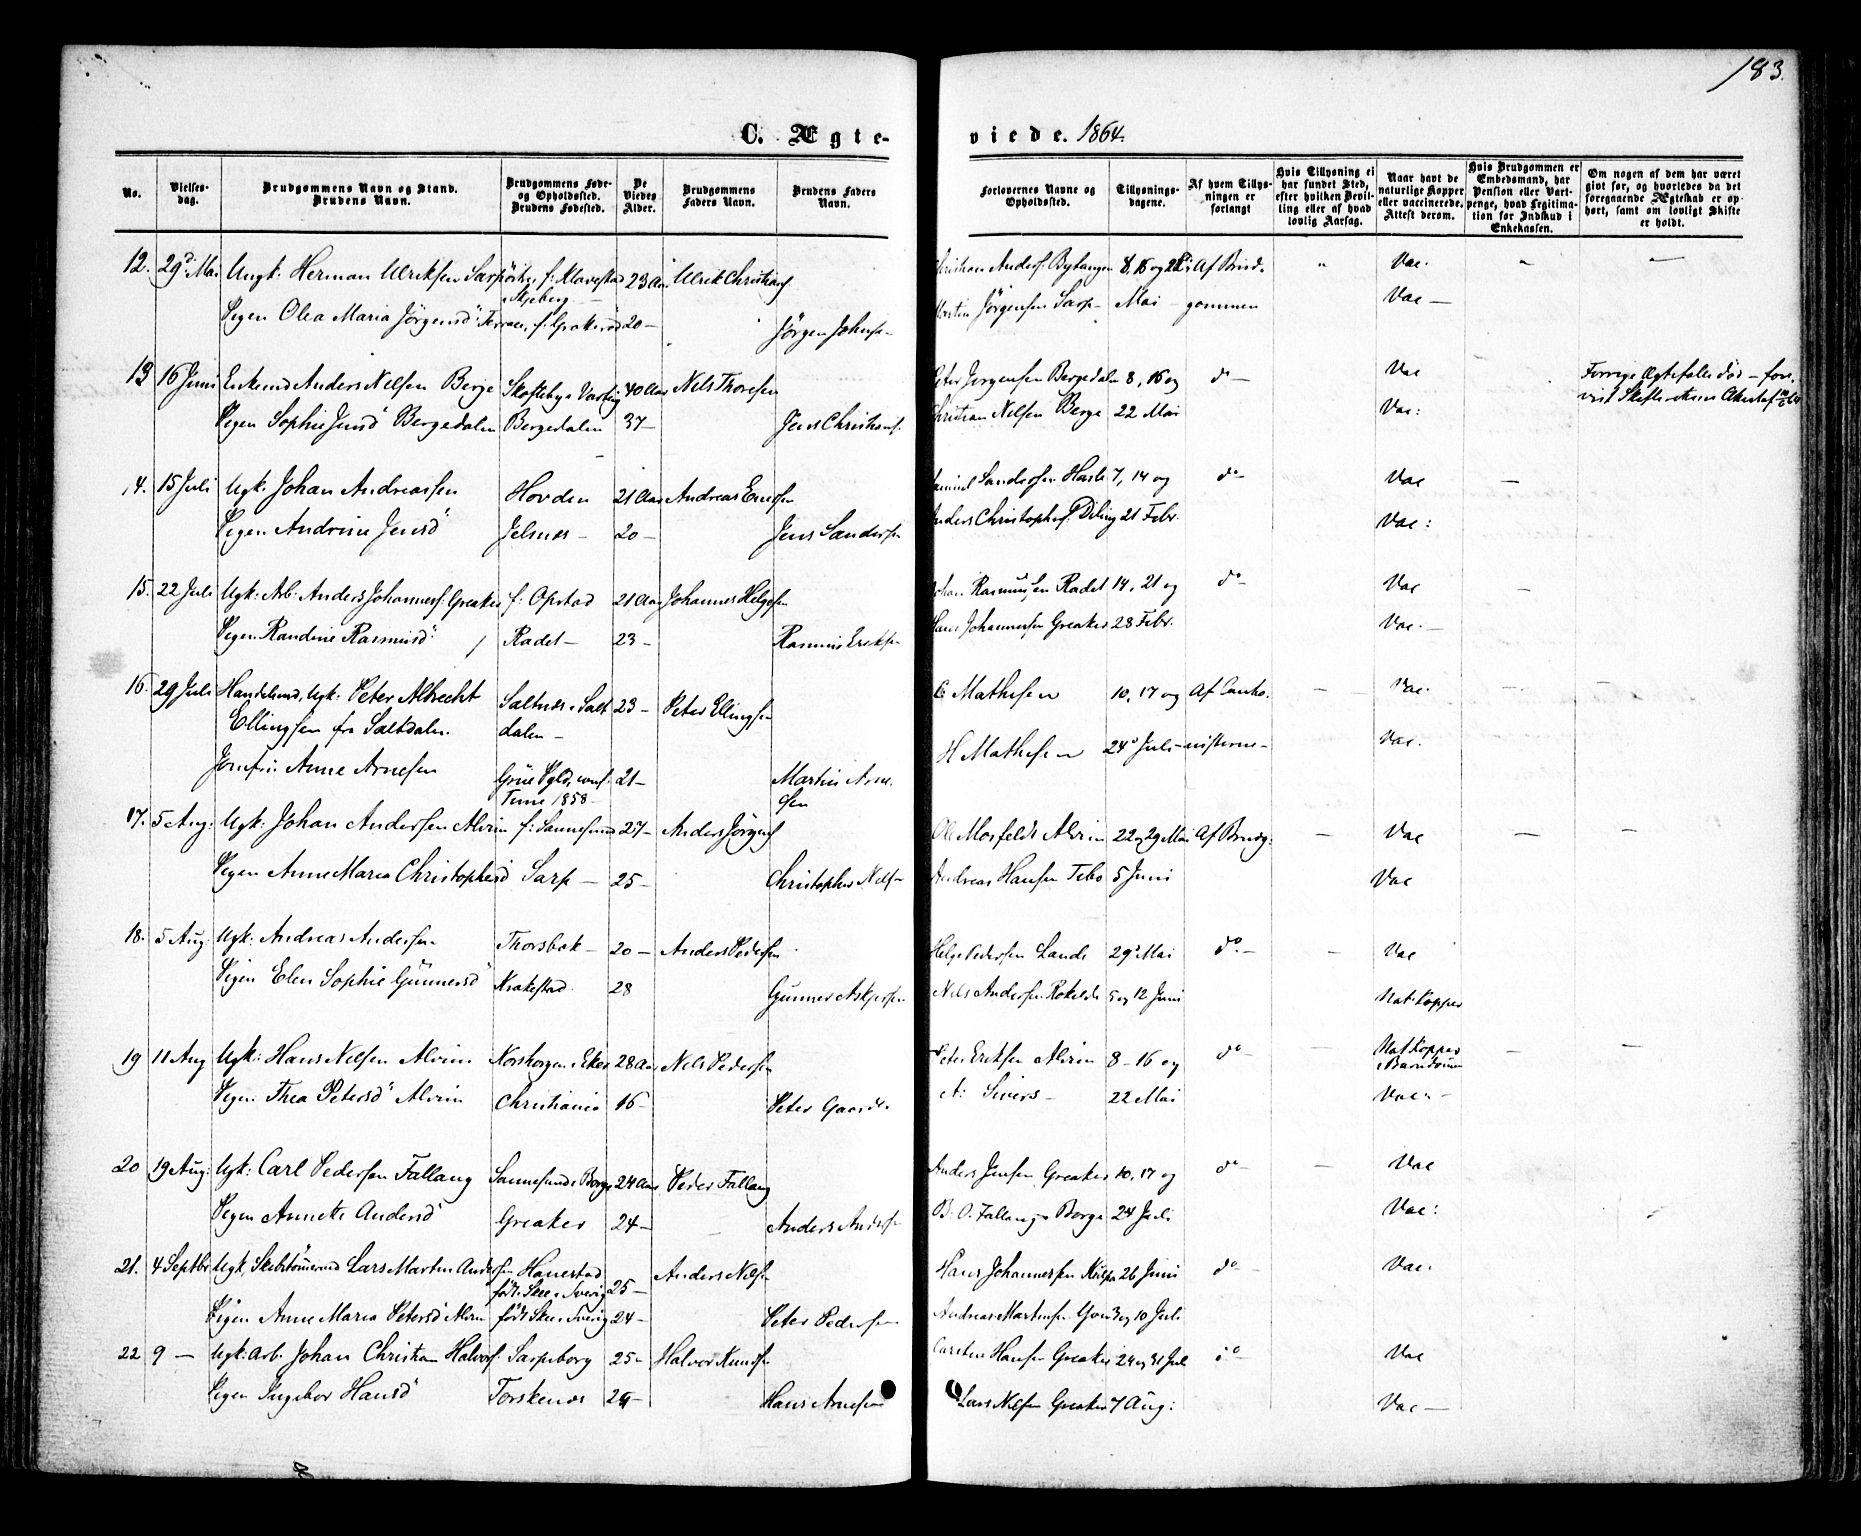 183.
C. Ægte-
viede. 1864.
No.
Vielses-
dag.
Brudgommens Navn og Stand.
Brudens Navn.
Brudgommens Føde-
og Opholdssted.
Brudens Fødested.
De
Viedes
Alder.
Brudgommens
Faders Navn.
Brudens Faders
Navn.
Forlovernes Navne og
Opholdssted.
Tillysnings-
dagene.
Af hvem Tillys-
ningen er
forlangt
Hvis Tillysning ei
har fundet Sted,
efter hvilken Bevil-
ling eller af hvad
lovlig Aarsag.
Naar havt de
naturlige Kopper
eller vaccinerede.
Attest derom.
Hvis Brudgommen er
Embedsmand, har
Pension eller Vart-
penge, hvad Legitima-
tion for Indskud i
Enkekassen.
Om nogen af dem har været
givt før, og hvorledes da det
foregaaende Ægteskab er op-
hørt, samt om lovligt Skifte
er holdt.
12. 29d Mai Ungk: Herman Ulriksen Sarpsborg, f: Klavestad 23 Aar Ulrik Christians 8, 16 og 22 Af Brud- Vac.
Skjeberg
Pigen Olea Maria Jörgensd 20 - Jörgen Johns Martin Jörgensen Sarp- Mai - gommen Vac -
13 16 Juni Enkemd Anders Nilsen Berge Skofteby i Varteig 40 Aar Nils Thoresen Peter Jörgensen Bergedalen 8, 16 og do - Vac Forrige Ægtefælle död - fore-
Pigen Sophie Jensd Bergedalen Bergedalen 37 - Jens Christians. Christian Nilsen Berge 22 Mai Vac:
14. 15 Juli Ugk: Johan Andreassen Hovden 21 Aar Andreas Sandersen Hasle 7, 14 og do - Vac -
Pigen Andrine Jensd Jelsnes - 20 - Jens Sandersen Anders Christophers. Deling 21 Febr. Vac:
15. 22 Juli Ugk: Arb: Anders Johannes: Greaker f: Opstad 21 Aar Johannes Helgesen Johan Rasmussen Radet 14, 21 og do - Vac -
Pigen Randine Rasmusd Radet - 23 - Rasmus Eriksen Hans Johannesen Greaker 28 Febr. Vac. -
16. 29 Juli Handelsmd, Ugk: Peter Albrecht Saltnes i Salt 23 - Peter Ellingsen C Mathesen 10, 17 og Af Lands. - Vac. -
Ellingsen fra Saltdalen. dalen - H Mathesen 24d Juli Vac.
Jomfru: Anne Arnesen 21 - Martin Arne-
Tune 1858 - sen
17. 5 Aug: Ugk: Johan Andersen Alvim f: Sannesund 27 - Anders Jörgens Ole Mosfeldt Alvim 22 og 29 Mai Af Brudg: - Vac -
Pigen Anne Maria Christophersd Sarp - 25 - Christopher Nils- Andreas Hansen Tebo 5 Juni Vac
18. 5 Aug: Ugk: Andreas Andersen Thorsbak - 20 - Anders Pedersen Helge Pedersen Lande 29d Mai do - - Vac
Pigen Elen Sophie Gunnersd Krakestad 28 Gunner Askjersen Nils Andersen Rokilde 5 og 12 Juni Nat: Kopper
19 11 Aug Ugk: Hans Nilsen Alvim Korshorgen i Eker 28 Aar Nils Pedersen Peter Eriksen Alvim 8 - 16 og do - - Nat Kopper
i Barndommen
Pigen Thea Petersd Alvim Christiania 16 - Peter Gaard A: Sivers - 22 Mai Vac -
20 19 Aug: Ugk: Carl Pedersen Fallang Sannesund i Borge 24 Aar Peder Fallang Anders Jensen Greaker 10, 17 og do - - Vac
Pigen Annette Andersd Greaker 24 - Anders Anders B: O: Fallang i Borge 24 Juli Vac:
21. 4 Septbr Ugk, Lars Martin Andersen Hanestad 25 - Anders Nilsen Hans Johannessen 26 Juni do - Vac.
födt Skee i Sverig
Pigen Anne Maria Petersd Alvim födt Skee i Sverig 24 - Peter Pedersen Andreas Martinsen 3 og 10 Juli
22 9 - Ugk: Arb. Johan Christian Halvors. Sarpsborg 25 - Halvor Knudsen Hansen Greaker 24 og 31 Jul do - Vac
Pigen Ingebor Hansd Torskenes Hans Arnesen Lars Nilsen Greaker 7 Aug: Vac -